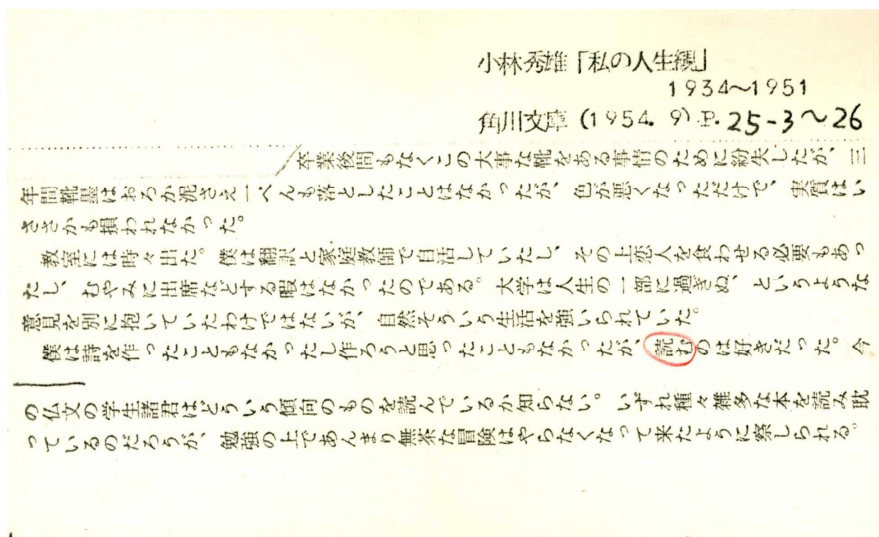 小林秀雄「私の人生観」
1934〜1951
角川文庫(1954.9)P.25-3〜26
卒業後間もなくこの大事な靴をある事情のために紛失したが、三
年間靴墨はおろか泥さえ一ぺんも落としたことはなかったが、色が悪くなっただけで、実質はい
ささかも損われなかった。
教室には時々出た。僕は翻訳と家庭教師で自活していたし、その上恋人を食わせる必要もあっ
たし、むやみに出席などする暇はなかったのである。大学は人生の一部に過ぎぬ、というような
意見を別に抱いていたわけではないが、自然そういう生活を強いられていた。
僕は詩を作ったこともなかったし作ろうと思ったこともなかったが、読むのは好きだった。今
の仏文の学生諸君はどういう傾向のものを読んでいるか知らない。いずれ種々雑多な本を読み耽
っているのだろうが、勉強の上であんまり無茶な冒険はやらなくなって来たように察しられる。